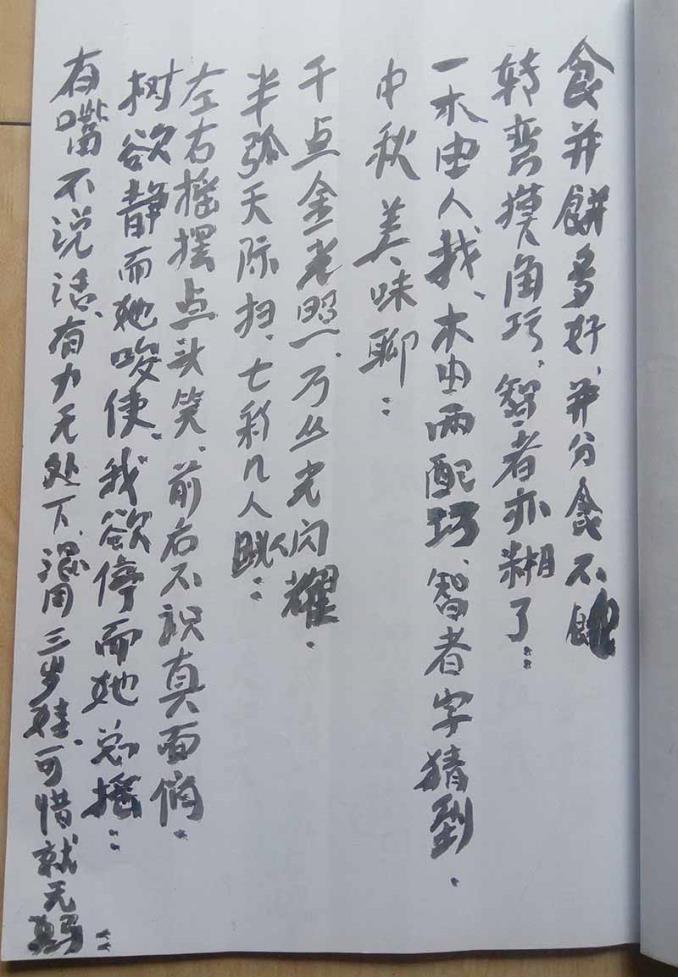 食并餅多好、并分食不
转弯摸角巧、智者亦糊了：
一木由人找、木由两配巧、智者字猜到．
中秋美味聊：
千点金光照、万丛光闪耀．
半弧天际扫、七彩几人
左右摇摆点头笑、前后不识真面俏．
树欲静而她唆使、我欲停而她总摇：
有嘴不说话、有力无处下、混同三岁娃、可惜就无